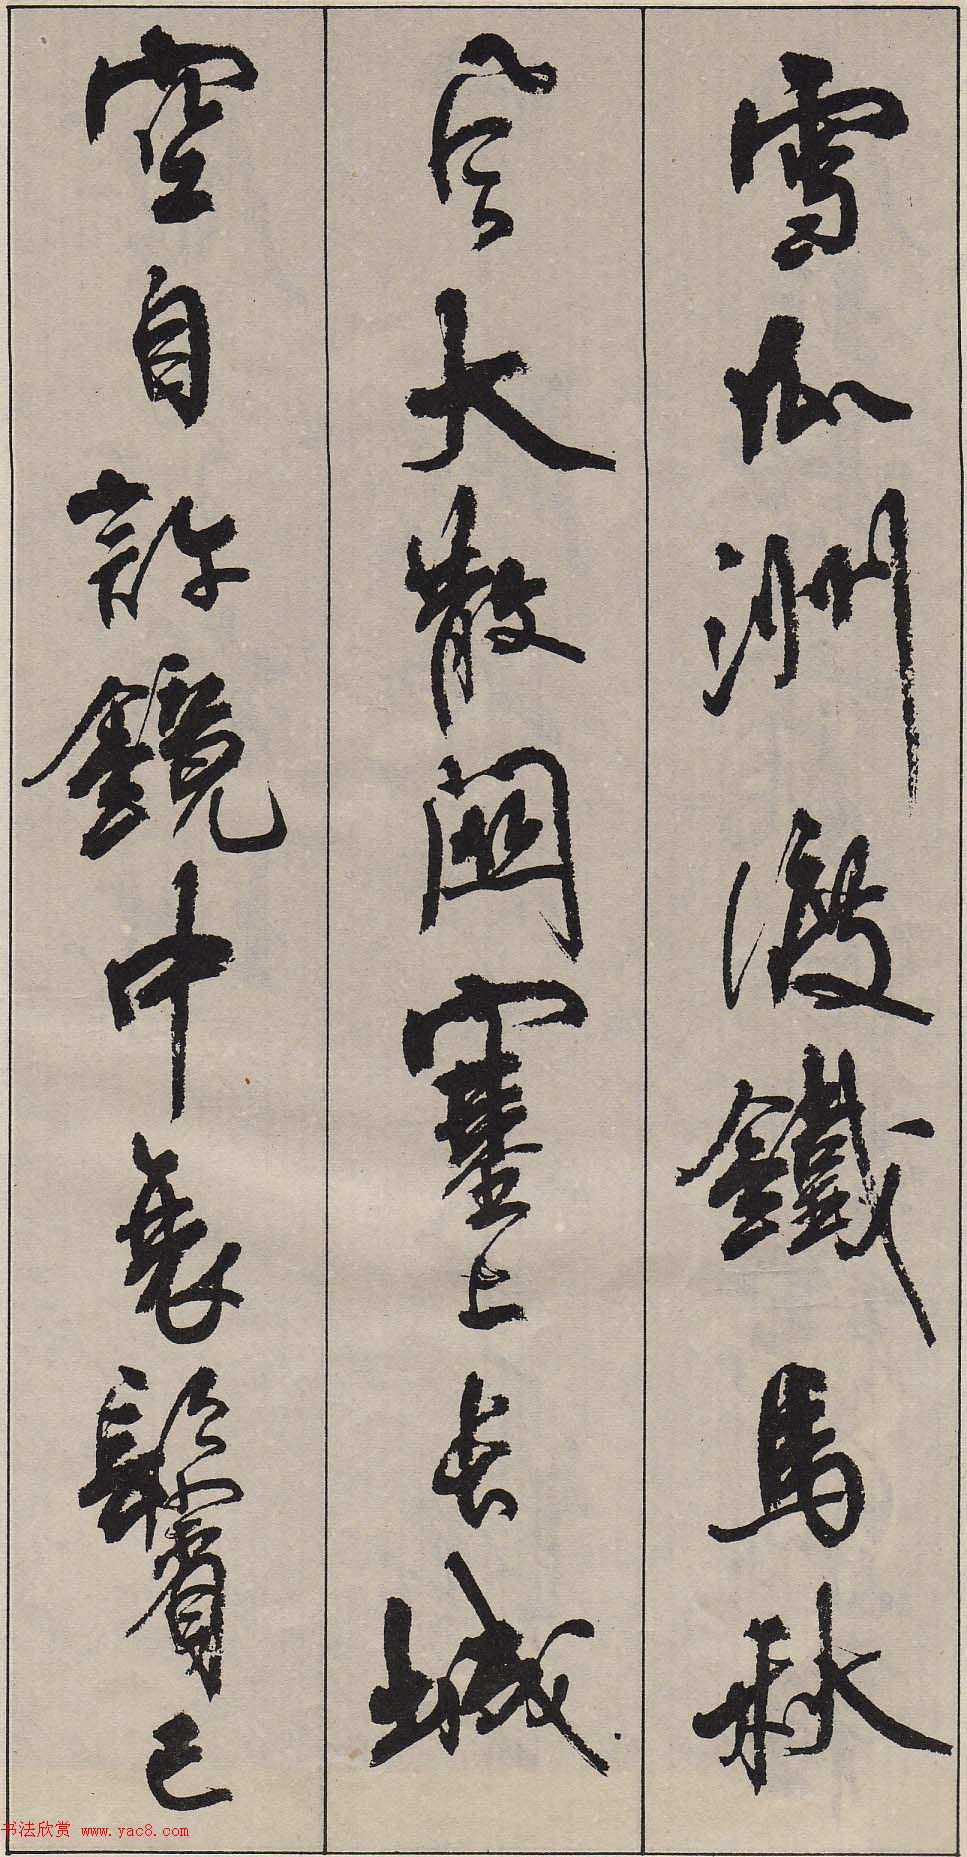 雪瓜洲渡鐵馬秋
風大散關塞上長城
空自許鏡中衰鬢已
书法欣赏 www.yac8.com